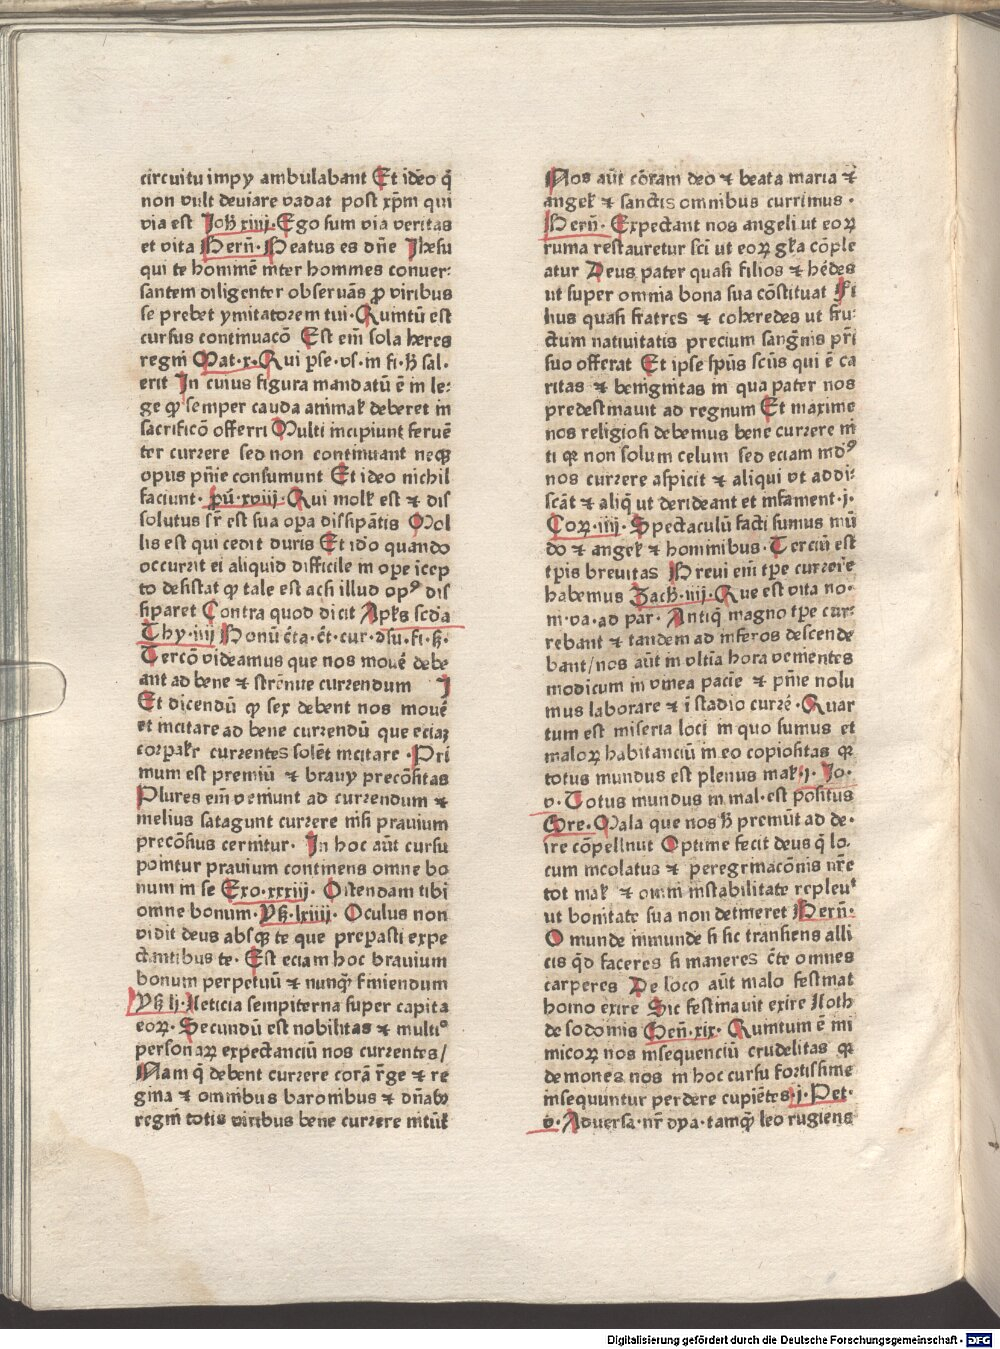 circuitu impy ambulabant Et ideo q̄
non vult deviare vadat post xp̄m qui
via est Joh̄ xiiij. Ego sum via veritas
et vita Bern̄. Beatus es dn̄e Jhesu
qui te hommē inter hommes conuer-
santem diligenter obseruās ꝓ viribus
se prebet ymitatorem tui. Quintū est
cursus continuacō Est em̄ sola heres
regni Mat. x. Qui ꝑse. vs. in fi. h̄ sal.
erit In cuius figura mandatū ē in le-
ge ꝙ semper cauda animalꝭ deberet in
sacrificō offerri Multi incipiunt feruē
ter currere sed non continuant neqꝫ
opus pn̄ie consumunt Et ideo nichil
faciunt. ꝓū. xviij. Qui mollꝭ est ⁊ dis
solutus sr̄ est sua oꝑa dissipātis Mol
lis est qui cedit duris Et idō quando
occurrit ei aliquid difficile in oꝑe icep
to desistat ꝙ tale est acsi illud opꝰ dis
siparet Contra quod dicit Apl̄s scd̄a
Thy. iiij Bonū c̄ta. c̄t. cur. ɔsu. fi. ẜ.
Tercō videamus que nos mouē debe
ant ad bene ⁊ strēnue currendum J
Et dicendū ꝙ sex debent nos mouē
et incitare ad bene currendū que eciaꝫ
corꝑalꝭr currentes solēt incitare. Pri
mum est premiū ⁊ brauy precōsitas
Plures em̄ veniunt ad currendum ⁊
melius satagunt currere nisi prauium
precōsius cernitur. In hoc aūt cursu
ponitur prauium continens omne bo
num in se Exo. xxxiij. Ostendam tibi
omne bonum. Yẜ. lxiiij. Oculus non
vidit deus absqꝫ te que preparasti expe
ctantibus te. Est eciam hoc brauium
bonum perpetuū ⁊ nunqꝫ finiendum
Yẜ lj. Leticia sempiterna super capita
eoꝝ. Secundū est nobilitas ⁊ multiᵒ
personaꝝ expectanciū nos currentes/
Nam q̄ debent currere corā r̄ge ⁊ re
gina ⁊ omnibus baronibus ⁊ dn̄abꝫ
regni totis viribus bene currere nitūt̄
Nos aūt cōram deo ⁊ beata maria ⁊
angelꝭ ⁊ sanctis omnibus currimus.
Bern̄. Expectant nos angeli ut eoꝝ
ruina restauretur sci ut eoꝝ gl̄a cōple
atur Deus pater quasi filios ⁊ hēdes
ut super omnia bona sua cōstituat Fi
lius quasi fratres ⁊ coheredes ut fru-
ctum natiuitatis precium sangīnis pr̄i
suo offerat Et ipse sp̄us sc̄us qui ē ca
ritas ⁊ benignitas in qua pater nos
predestinauit ad regnum Et maxime
nos religiosi debemus bene currere in
ti qꝛ non solum celum sed eciam mdꝰ
nos currere aspicit ⁊ aliqui vt addi-
scāt ⁊ aliq̄ ut derideant et infament. j.
Coꝝ. iiij. Spectaculū facti sumus mū
do ⁊ angelꝭ ⁊ hominibus. Tercīū est
tꝑis breuitas Breui em̄ tꝑe currere
habemus Zach̄. iiij. Que est vita no-
m. va. ad par. Antiq̄ magno tꝑe cur-
rebant ⁊ tandem ad inferos descende
bant/nos aūt in vltīa hora venientes
modicum in vinea pacīe ⁊ pn̄ie nolu
mus laborare ⁊ ī stadio currē. Quar
tum est miseria loci in quo sumus et
maloꝝ habitanciū in eo copiositas qꝛ
totus mundus est plenus malꝭ. j. Jo.
v. Totus mundus in mal. est positus
Gre. Mala que nos h̄ premūt ad de-
ire cōpellnut Optime fecit deus q̄ lo-
cum incolatus ⁊ peregrinacōnis nr̄e
tot malꝭ ⁊ omni instabilitate repleuᵗ
ut bonitate sua non detineret Bern̄.
O munde inmunde si sic transiens alli
cis qd̄ faceres si maneres c̄te omnes
carperes De loco aūt malo festinat
homo exire Sic festinauit exire Loth
de sodomis Gen̄. xix. Quintum ē ini
micoꝝ nos insequenciū crudelitas qꝛ
demones nos in hoc cursu fortissime
insequuntur perdere cupiētes. j. Pet.
v. Aduersa. nr̄ dya. tamqꝫ leo rugiens
Digitalisierung gefördert durch die Deutsche Forschungsgemeinschaft - DFG